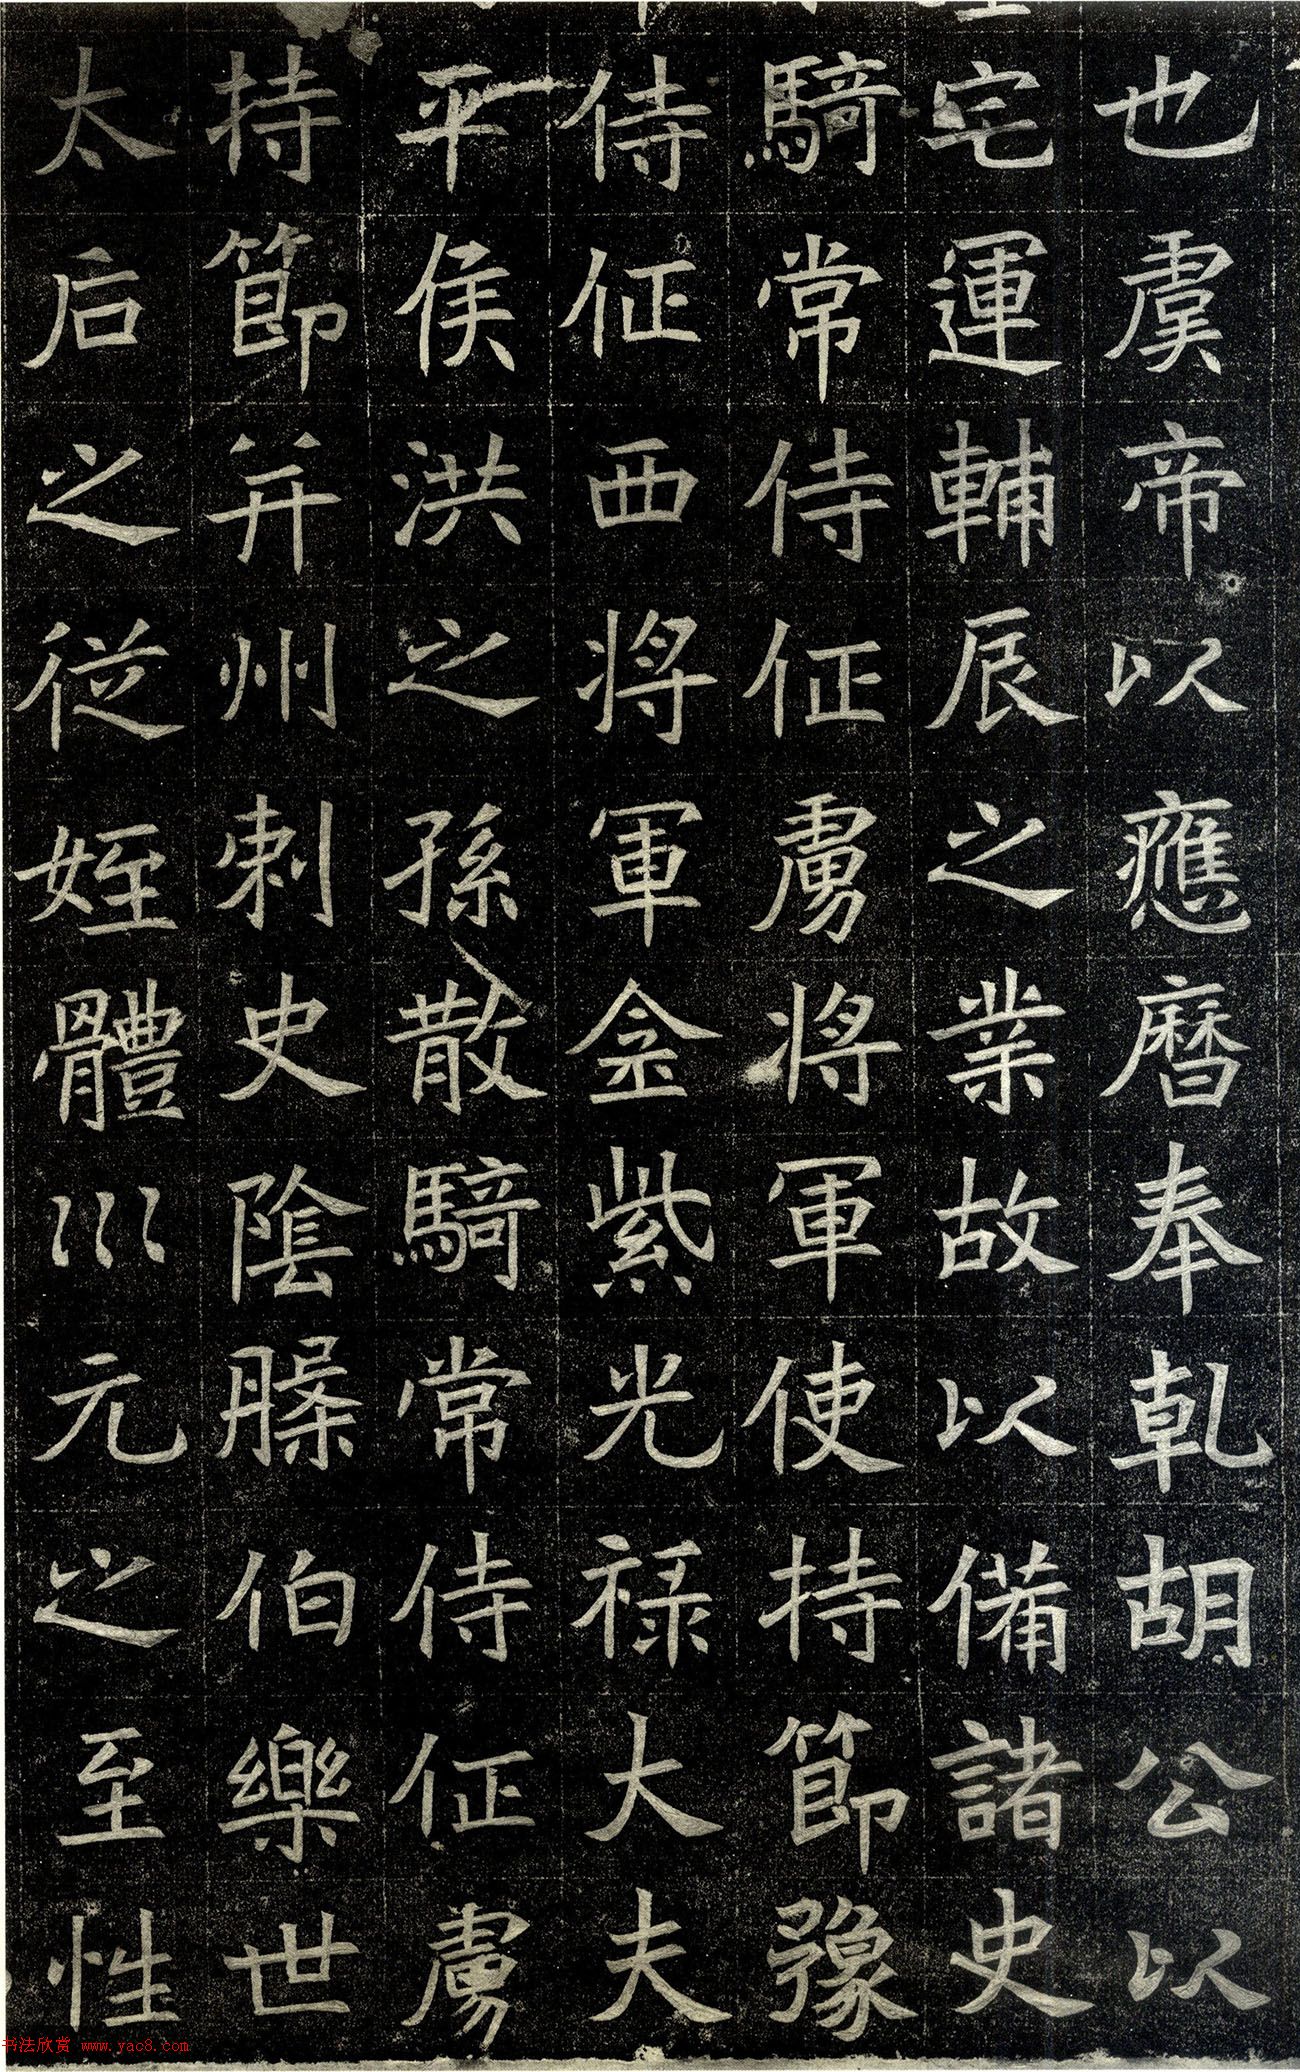 也虞帝以應曆奉乾胡公以
宅運輔辰之業故以備諸史
騎常侍征虜將軍使持節豫
侍征西將軍金紫光祿大夫
平侯洪之孫散騎常侍征虜
持節并州刺史陰槃伯樂世
太后之從姪體巛元之至性
书法欣赏 www.yac8.com